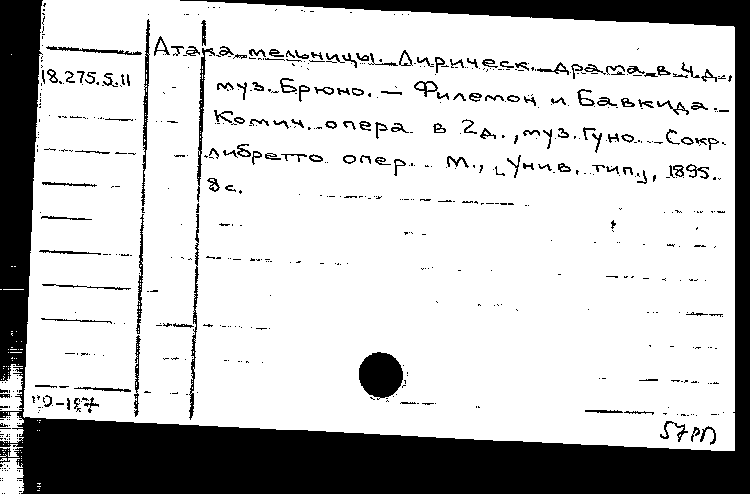 Атака мельницы. Лирическ. драма в 4 д.,
18.275.5.11
муз. Брюно. — Филемон и Бавкида. -
Комич. опера в 2 д., муз. Гуно. Сокр.
либретто опер. М., [Унив. тип.], 1895.
8 с.
57РП